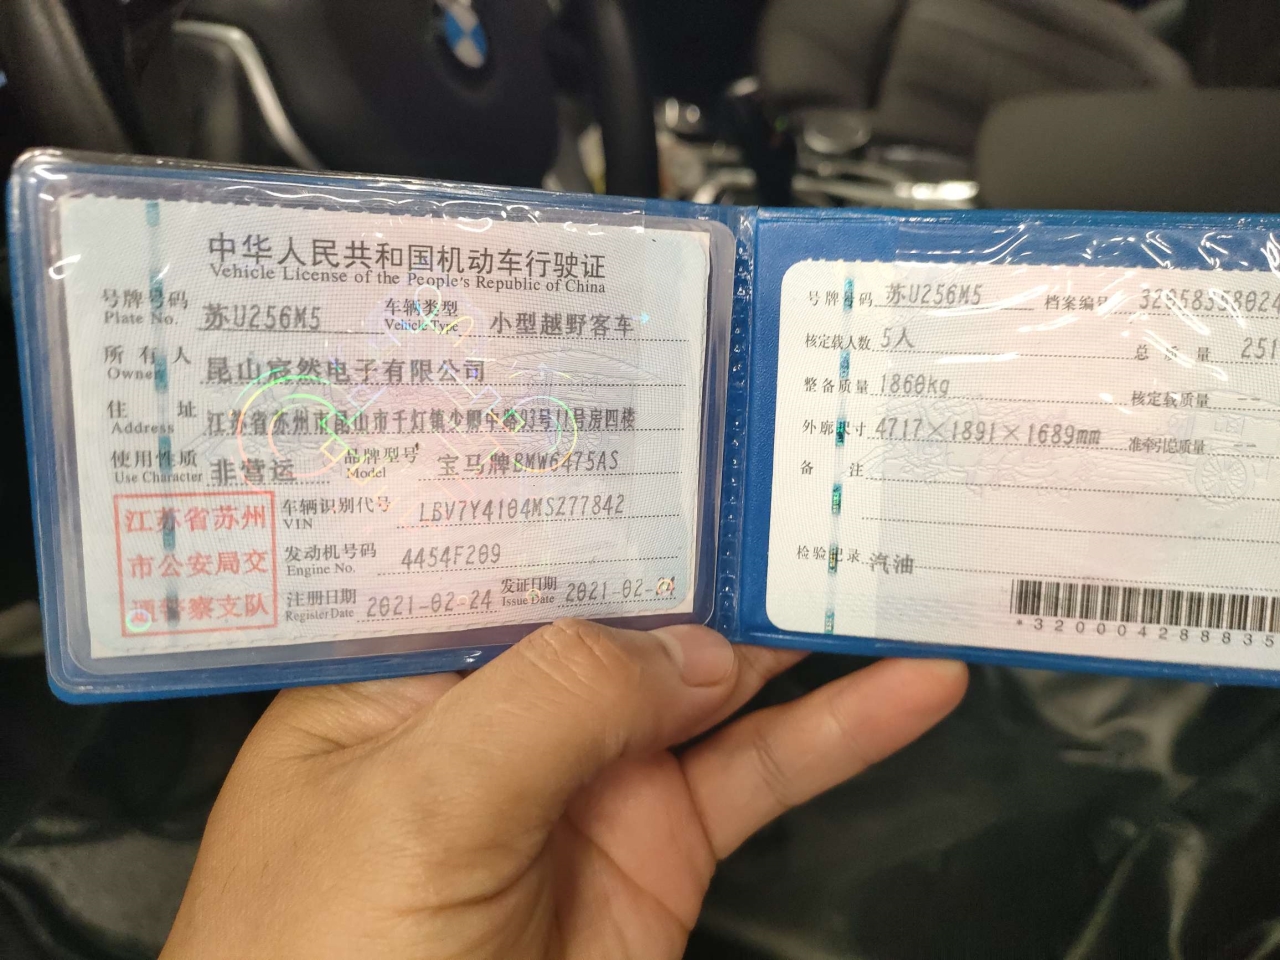 中华人民共和国机动车行驶证
Vehicle License of the People's Republic of China
号牌号码 苏U256M5 车辆类型 小型越野客车
Plate No. Vehicle Type
所有人 昆山宼然电子有限公司
Owner
住址 江苏省苏州市昆山市千灯镇少卿中路93号11号房四楼
Address
使用性质 非营运 品牌型号 宝马牌BMW6475AS
Use Character Model
江苏省苏州
市公安局交
通警察支队
车辆识别代号 LBV7Y4104MS277842
VIN
发动机号码 4454F209
Engine No.
注册日期 2021-02-24 发证日期 2021-02-24
Register Date Issue Date
号牌号码 苏U256M5 档案编号
核定载人数 5人 总质量
整备质量 1860kg 核定载质量 --
外廓尺寸 4717×1891×1689mm 准牵引总质量 --
备注
检验记录 汽油
*320004288835